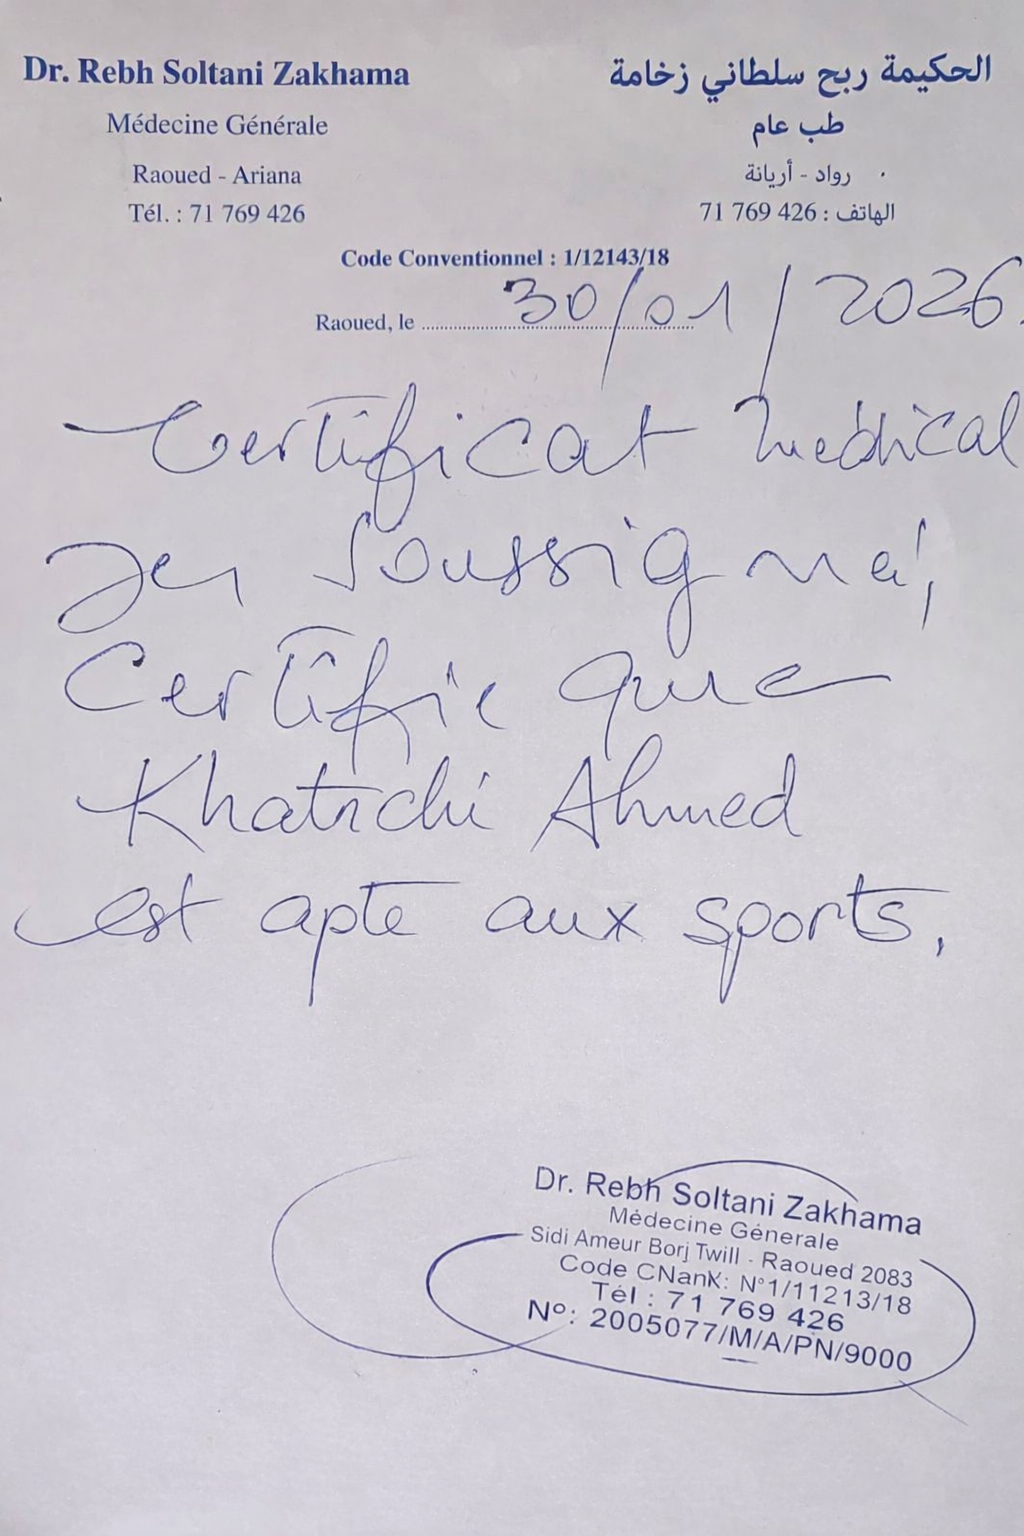 Dr. Rebh Soltani Zakhama
Médecine Générale
Raoued - Ariana
Tél. : 71 769 426
الحكيمة ربح سلطاني زخامة
طب عام
رواد - أريانة
الهاتف : 426 769 71
Code Conventionnel : 1/12143/18
Raoued, le 30/01/2026.
Certificat medical
Je soussigné,
Certifie que
Khatrchi Ahmed
est apte aux sports.
Dr. Rebh Soltani Zakhama
Médecine Génerale
Sidi Ameur Borj Twill - Raoued 2083
Code CNanK: N°1/11213/18
Tél : 71 769 426
N°: 2005077/M/A/PN/9000